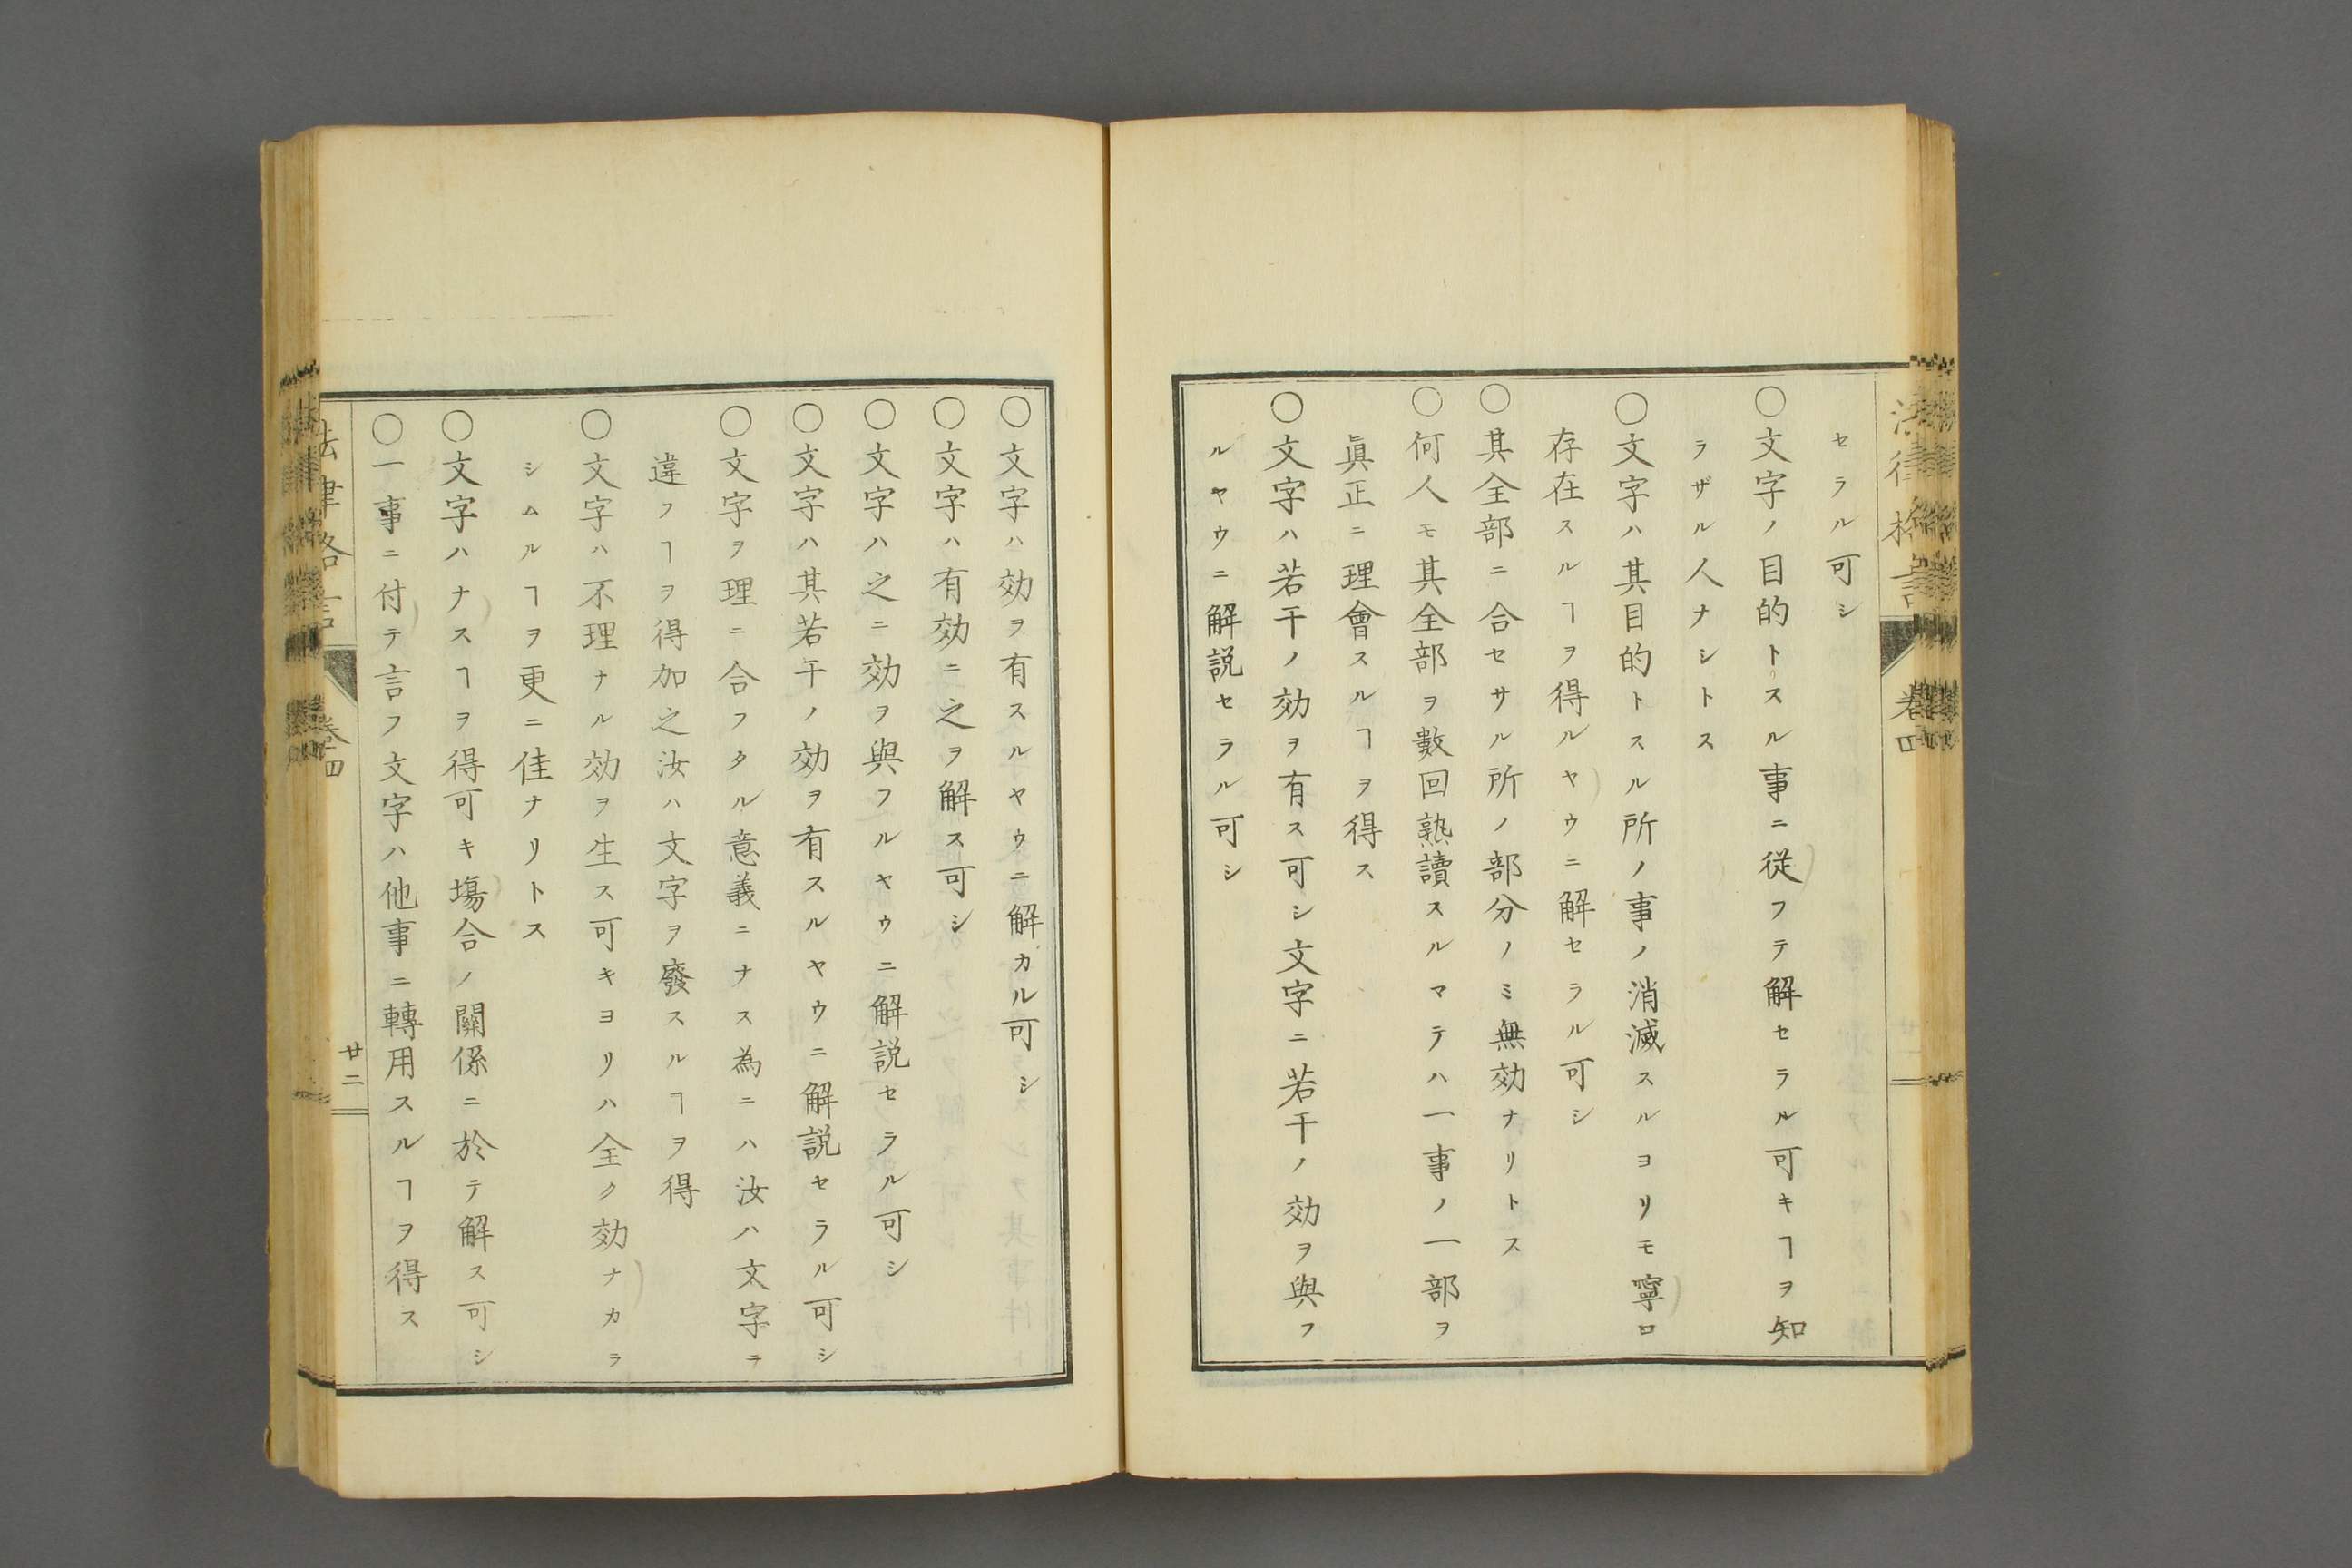 セラル可シ
○文字ノ目的トスル事ニ従フテ解セラル可キヿヲ知
ラザル人ナシトス
○文字ハ其目的トスル所ノ事ノ消滅スルヨリモ寧ロ
存在スルヿヲ得ルヤウニ解セラル可シ
○其全部ニ合セサル所ノ部分ノミ無効ナリトス
○何人モ其全部ヲ數回熟讀スルマテハ一事ノ一部ヲ
眞正ニ理會スルヿヲ得ス
○文字ハ若干ノ効ヲ有ス可シ文字ニ若干ノ効ヲ與フ
ルヤウニ解説セラル可シ
○文字ハ効ヲ有スルヤウニ解カル可シ
○文字ハ有効ニ之ヲ解ス可シ
○文字ハ之ニ効ヲ與フルヤウニ解説セラル可シ
○文字ハ其若干ノ効ヲ有スルヤウニ解説セラル可シ
○文字ヲ理ニ合フタル意義ニナス為ニハ汝ハ文字ニ
違フヿヲ得加之汝ハ文字ヲ發スルヿヲ得
○文字ハ不理ナル効ヲ生ス可キヨリハ全ク効ナカラ
シムルヿヲ更ニ佳ナリトス
○文字ハナスヿヲ得可キ塲合ノ關係ニ於テ解ス可シ
○一事ニ付テ言フ文字ハ他事ニ轉用スルヿヲ得ス
法律格言 卷四 廿二